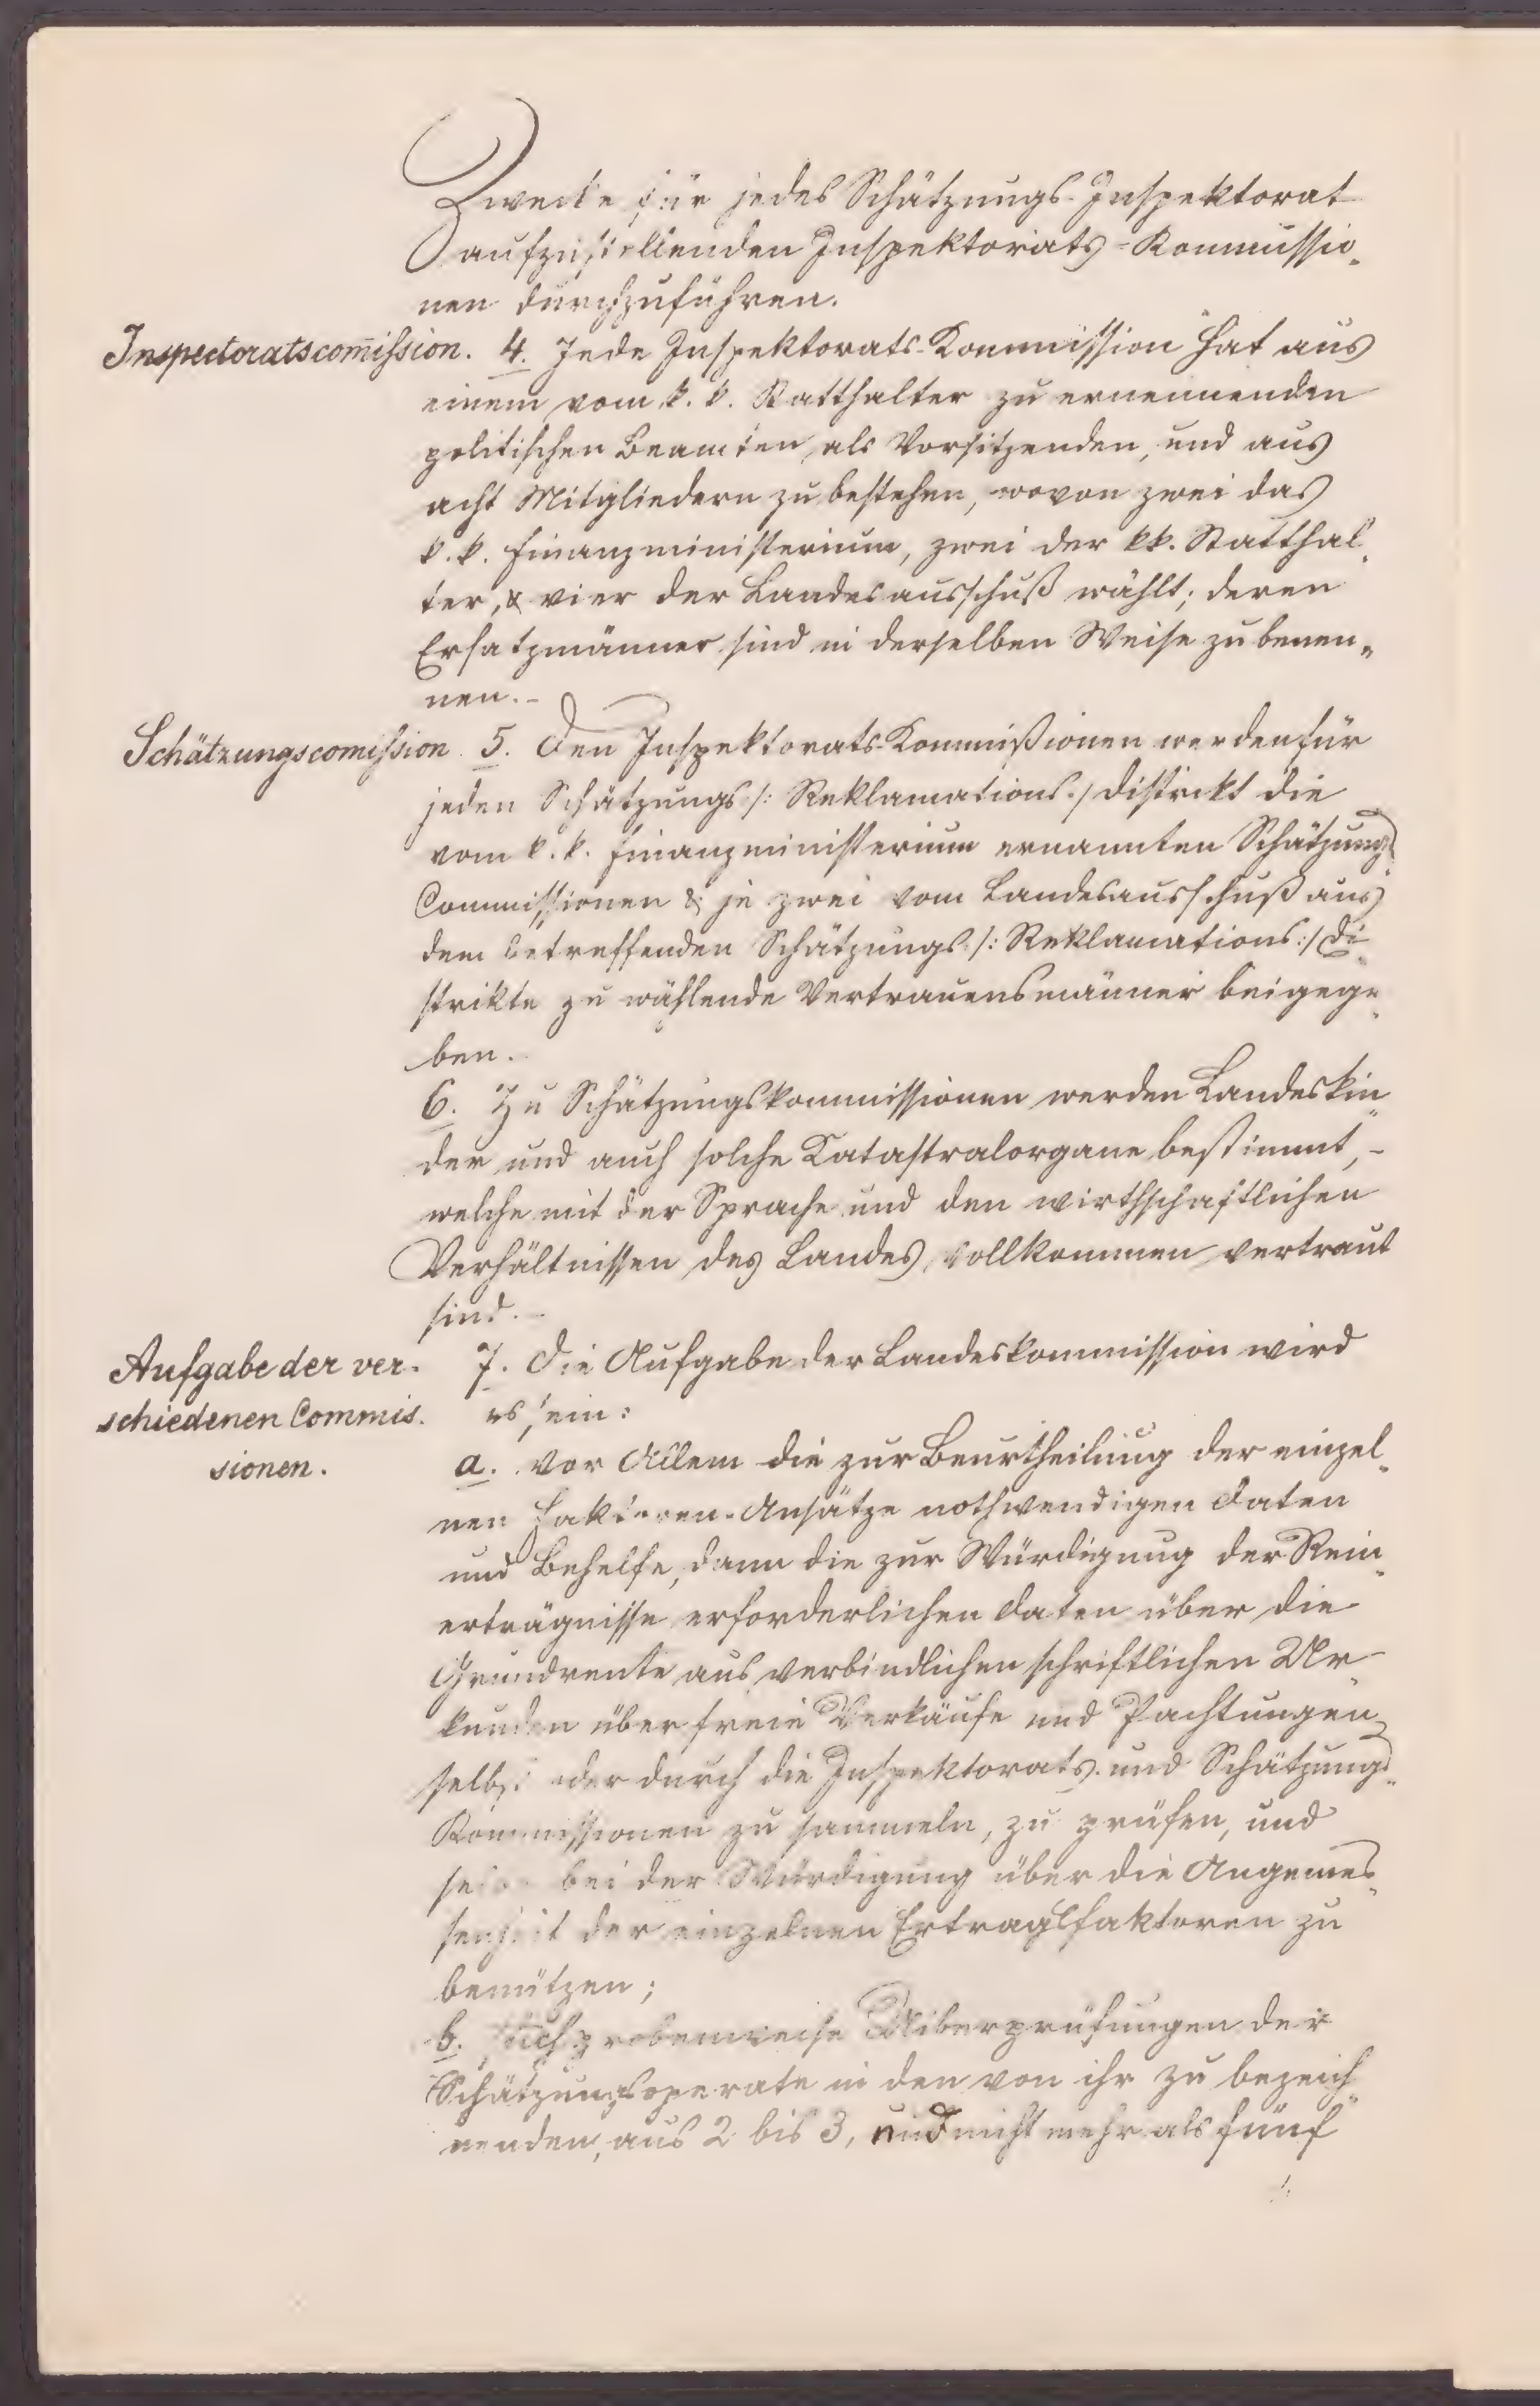 Zwecke für jedes Schätzungs-Inspektorat
aufzustellenden Inspektorats-Kommissio„
nen durchzuführen.
Inspectoratscom̅ission. 4. Jede Inspektorats-Kommission hat aus
einem vom k. k. Statthalter zu ernennenden
politischen Beamten, als Vorsitzenden, und aus
acht Mitgliedern zu bestehen, wovon zwei das
k. k. Finanzministerium, zwei der kk. Statthal„
ter, & vier der Landesausschuß wählt; deren
Ersatzmänner sind in derselben Weise zu benen„
nen.-
Schätzungscomission 5. Den Inspektorats-Kommißionen werden für
jeden Schätzungs /: Reklamations :/ Distrikt die
vom k. k. Finanzministerium ernannten Schätzungs„
Commissionen & je zwei vom Landesausschuß aus
dem betreffenden Schätzungs /: Reklamations :/ Di„
strikte zu wählende Vertrauensmänner beigege„
ben.
6. Zu Schätzungskommissionen werden Landeskin„
der und auch solche Katastralorgane bestimmt,-
welche mit der Sprache und den wirthschaftlichen
Verhältnissen des Landes vollkommen vertraut
sind.-
Aufgabe der ver-
schiedenen Commis-
sionen.
7. Die Aufgabe der Landeskommission wird
es sein:
a. vor Allem die zur Beurtheilung der einzel„
nen Faktoren-Ansätze nothwendigen Daten
und Behelfe, dann die zur Würdigung der Rein„
erträgnisse erforderlichen Daten über die
Grundrente aus verbindlichen schriftlichen Ur„
kunden über freie Verkäufe und Pachtungen
selbst oder durch die Inspektorats- und Schätzungs„
Kommissionen zu sammeln, zu prüfen, und
selbe bei der Würdigung über die Angemes„
senheit der einzelnen Ertragsfaktoren zu
benützen;
b. stichprobenweise Uiberprüfungen der
Schätzungsoperate in den von ihr zu bezeich„
nenden, aus 2 bis 3, und nicht mehr als fünf